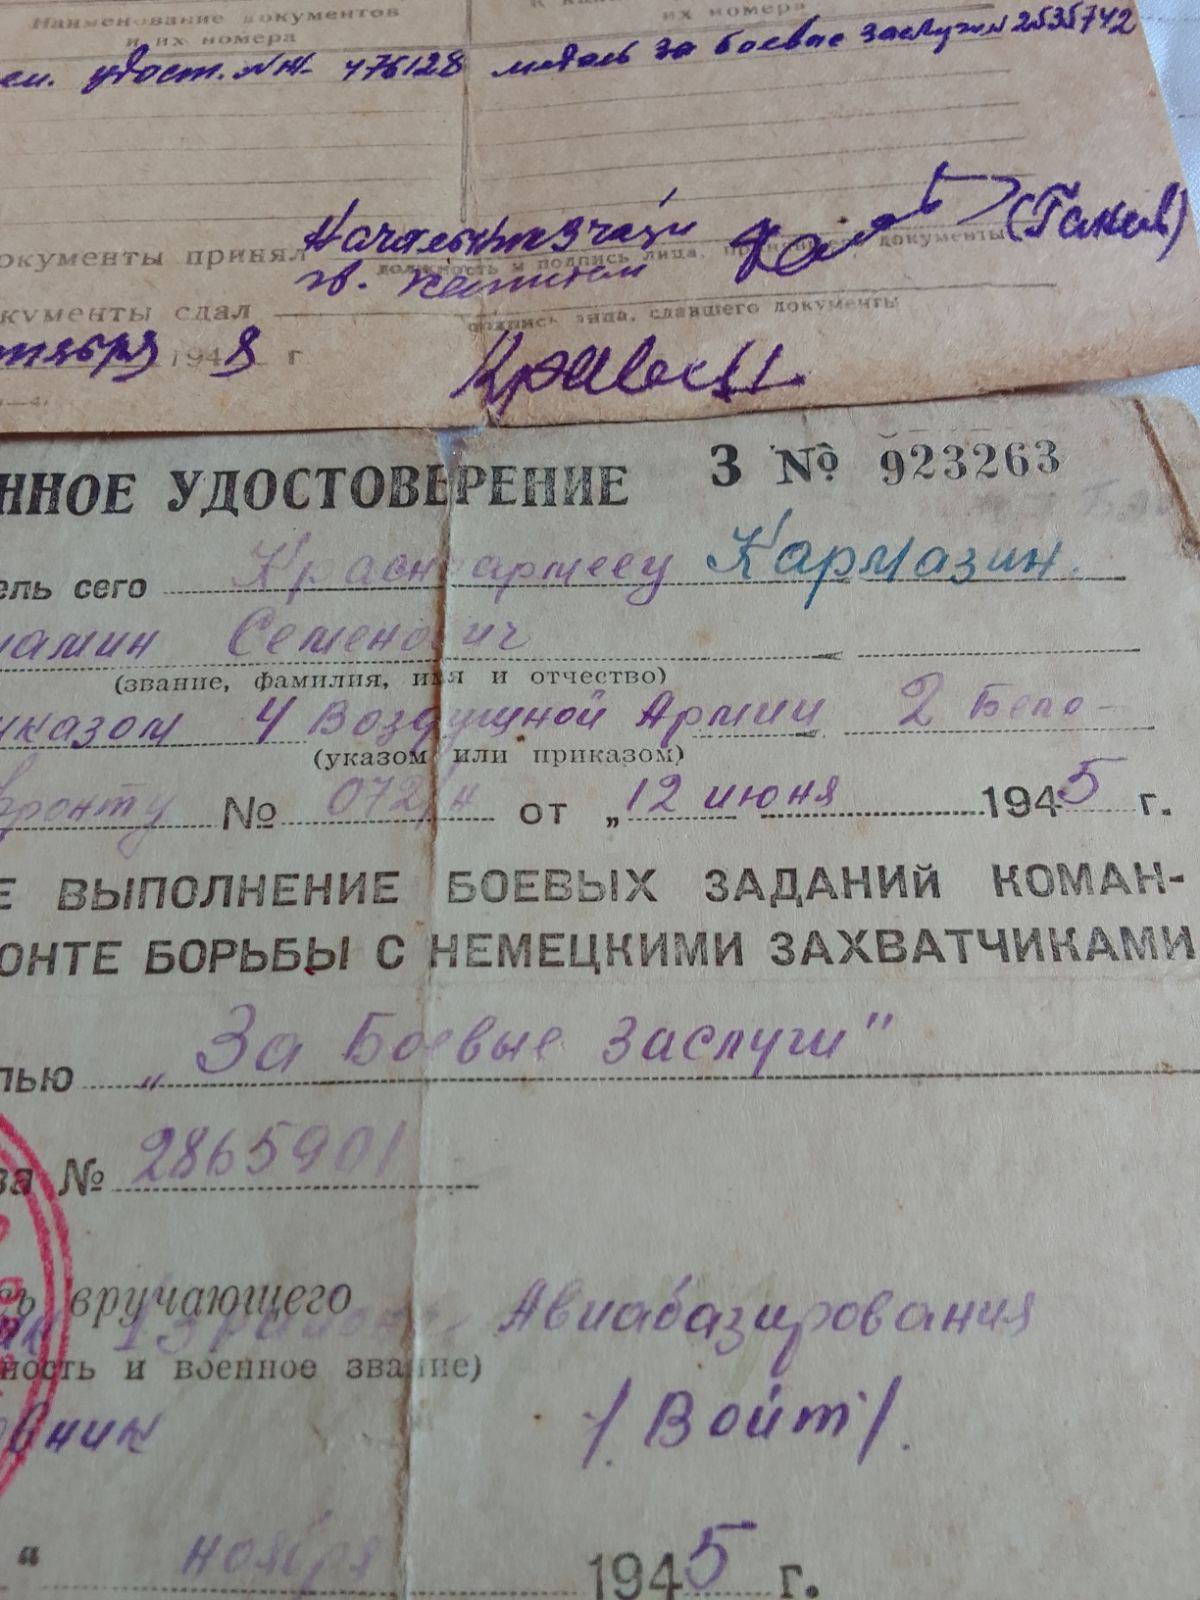 Наименование документов
и их номера
их номера
удост. №Ж- 476128 медаль за боевые заслуги 2535742
окументы принял Начальник 3 части
должность и подпись лица, документы
гв. капитан
кументы сдал
подпись лица, сдавшего документы
тября 1948 г
ННОЕ УДОСТОВЕРЕНИЕ З № 923263
ель сего Красноармеец Кармазин.
иамин Семенович
(звание, фамилия, имя и отчество)
иказом 4 Воздушной Армии 2 Бело-
(указом или приказом)
фронту № 072/н от „12 июня 1945 г.
Е ВЫПОЛНЕНИЕ БОЕВЫХ ЗАДАНИЙ КОМАН-
ОНТЕ БОРЬБЫ С НЕМЕЦКИМИ ЗАХВАТЧИКАМИ
лью „За Боевые Заслуги"
ва № 2865901
сь вручающего
Авиабазирования
ность и военное звание)
овник /Войт/.
" ноября 1945 г.